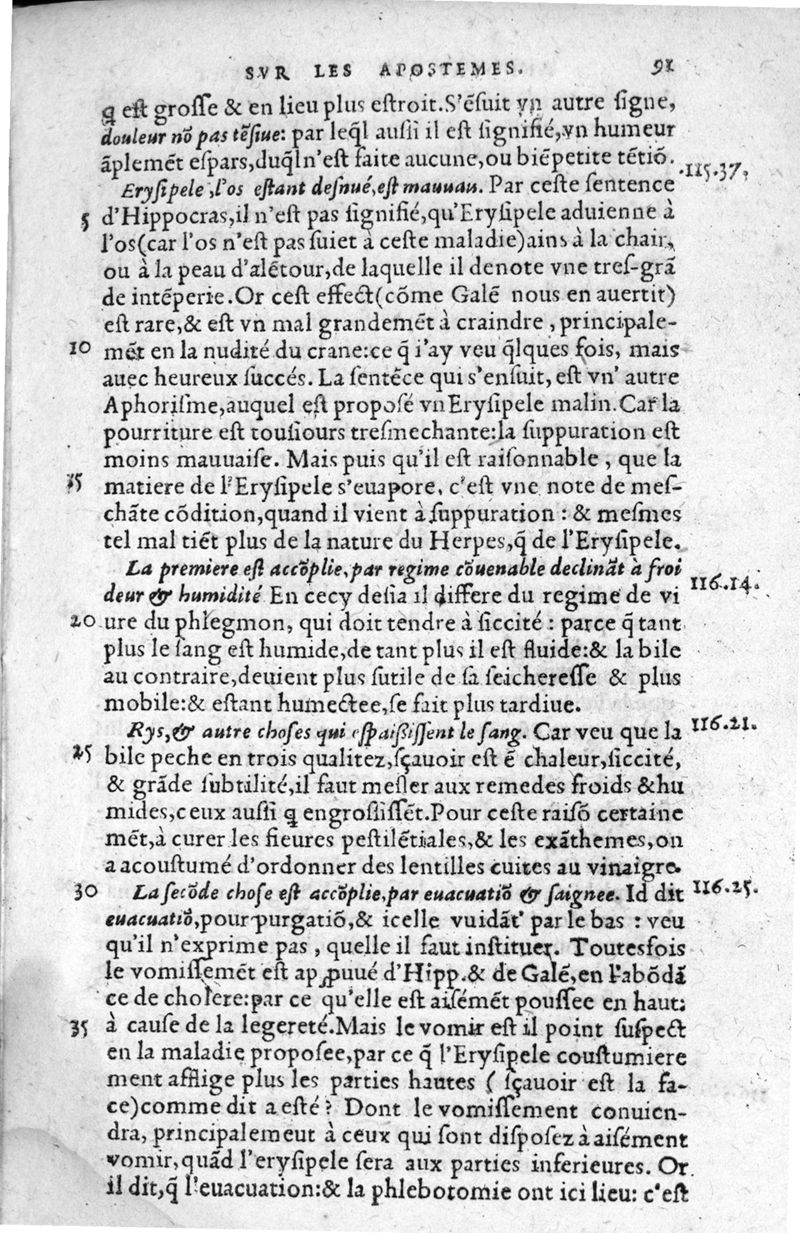 SVR LES APOSTEMES. 91
q̃ est grosse & en lieu plus estroit.S'ēsuit vn autre signe,
douleur nõ pas tēsiue: par leq̃l aussi il est signifié,vn humeur
ãplemēt espars,duq̃l n'est faite aucune,ou biē petite tētiõ.
Erysipele ,l'os estant desnué,est mauuau. Par ceste sentence 115.37.
5 d'Hippocras,il n'est pas signifié,qu'Erysipele aduienne à
l'os(car l'os n'est pas suiet à ceste maladie)ains à la chair,
ou à la peau d'alētour,de laquelle il denote vne tres-grã
de intēperie.Or cest effect(cõme Galē nous en auertit)
est rare,& est vn mal grandemēt à craindre , principale-
10 mēt en la nudité du crane:ce q̃ i'ay veu q̃lques fois, mais
auec heureux succés. La sentēce qui s'ensuit, est vn' autre
Aphorisme,auquel est proposé vn Erysipele malin. Car la
pourriture est tousiours tresmechante:la suppuration est
moins mauuaise. Mais puis qu'il est raisonnable , que la
15 matiere de l'Erysipele s'euapore, c'est vne note de mes-
chãte cõdition,quand il vient à suppuration : & mesmes
tel mal tiēt plus de la nature du Herpes,q̃ de l'Erysipele.
La premiere est accõplie,par regime cõuenable declināt à froi
deur & humidité En cecy desia il differe du regime de vi 116.14.
20 ure du phlegmon, qui doit tendre à siccité : parce q̃ tant
plus le sang est humide,de tant plus il est fluide:& la bile
au contraire,deuient plus sutile de sa seicheresse & plus
mobile:& estant humectee,se fait plus tardiue.
Rys,& autre choses qui espaissißent le sang. Car veu que la 116.21.
25 bile peche en trois qualitez,sçauoir est ē chaleur,siccité,
& grãde subtilité,il faut mesler aux remedes froids &hu
mides,ceux aussi q̃ engrossissēt.Pour ceste raisõ certaine
mēt,à curer les fieures pestilētiales,& les exãthemes,on
a acoustumé d'ordonner des lentilles cuites au vinaigre.
30 La secõde chose est accõplie,par euacuatiõ & saignee. Id dit 116.25.
euacuatiõ,pour purgatiõ,& icelle vuidãt par le bas : veu
qu'il n'exprime pas , quelle il faut instituer. Toutesfois
le vomissemēt est apꝓuué d'Hipp.& de Galē,en l'abõdã
ce de cholere:par ce qu'elle est aisémēt poussee en haut:
35 à cause de la legereté.Mais le vomir est il point suspect
en la maladie proposee,par ce q̃ l'Erysipele coustumiere
ment afflige plus les parties hautes ( sçauoir est la fa-
ce)comme dit a esté? Dont le vomissement conuien-
dra, principalemeut à ceux qui sont disposez à aisément
vomir,quãd l'erysipele sera aux parties inferieures. Or
il dit,q̃ l'euacuation:& la phlebotomie ont ici lieu: c'est